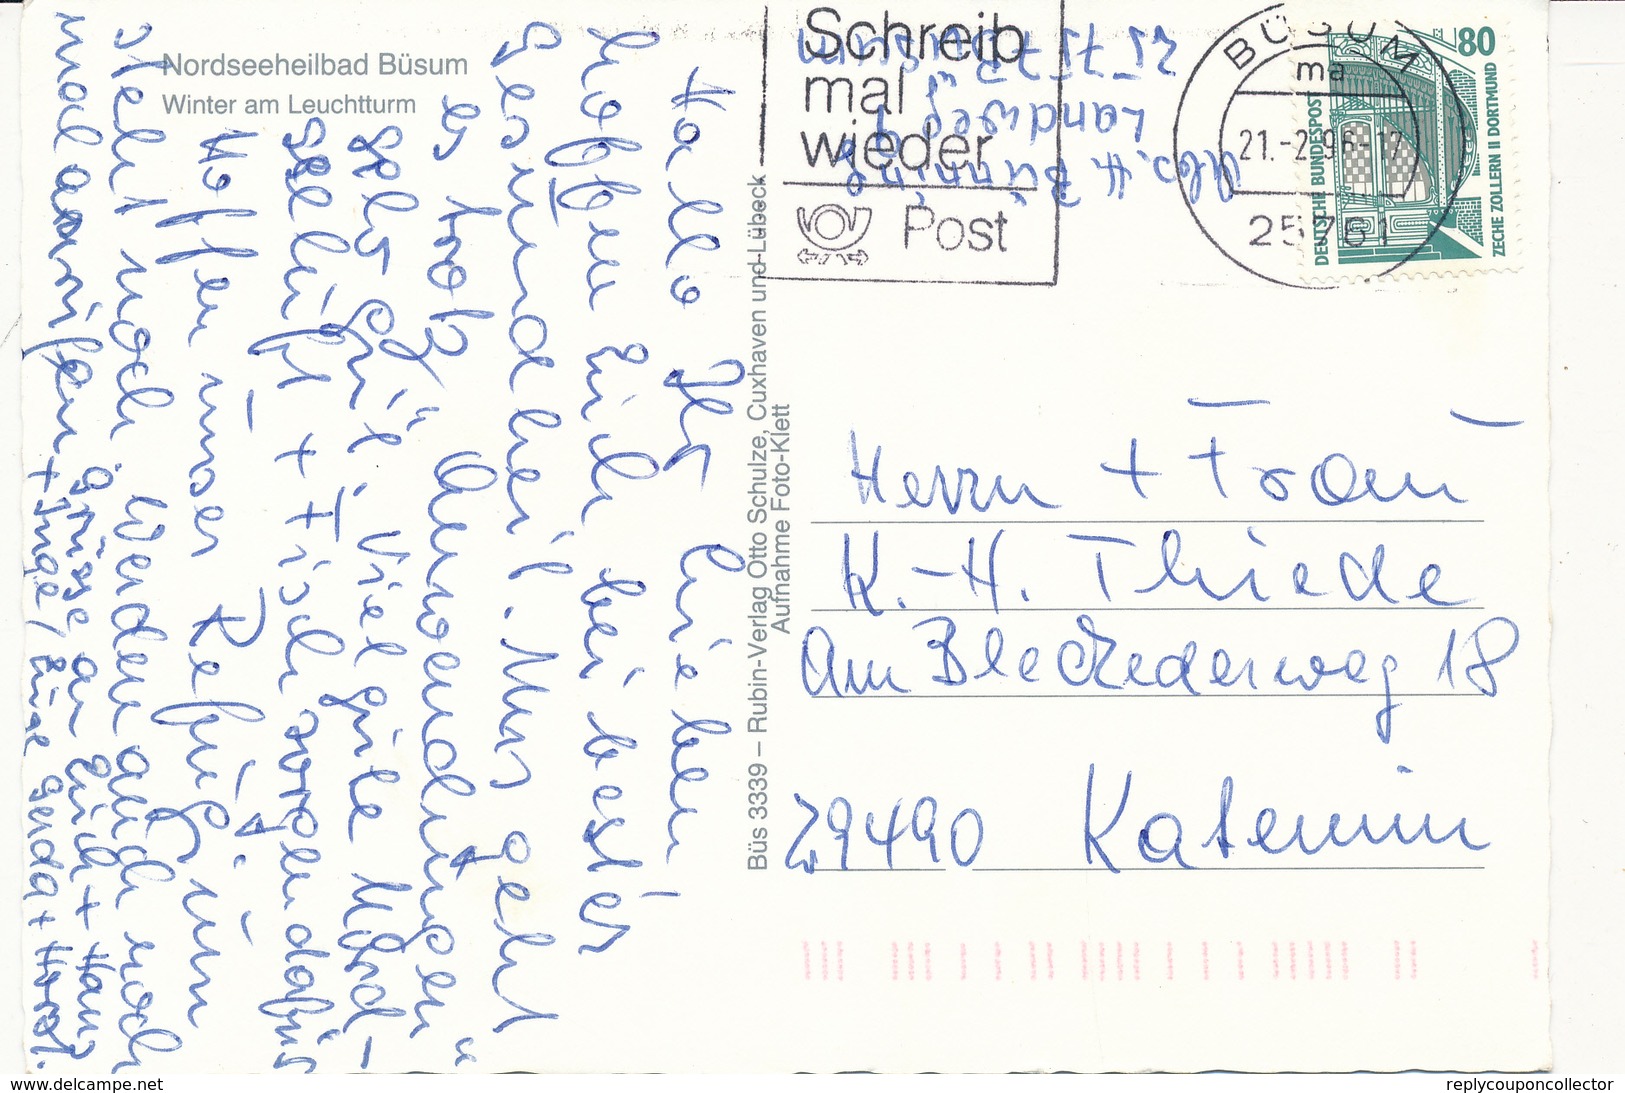 Nordseeheilbad Büsum
Winter am Leuchtturm
Hallo Ihr Lieben!
hoffen Euch bei bester
Gesundheit. Uns geht
es trotz „Anwendungen“
sehr gut. Viel gute Nord-
seeluft + Fisch sorgen dafür
Hoffen unser Refügium
steht noch. Werden auch noch
mal anrufen
Grüsse an Euch + Hans
+ Inge, Eure Gerda + Horst.
Büs 3339 – Rubin-Verlag Otto Schulze, Cuxhaven und Lübeck
Aufnahme Foto-Klett
Abs. H. Bünning
Landweg
25757 Büsum
Schreib
mal
wieder
Post
BÜSUM
ma
21.-2.96-17
25761
80
DEUTSCHE BUNDESPOST
ZECHE ZOLLERN II DORTMUND
Herrn + Frau
K.-H. Thiede
Am Bleckederweg 18
29490 Katemin
www.delcampe.net
replycouponcollector